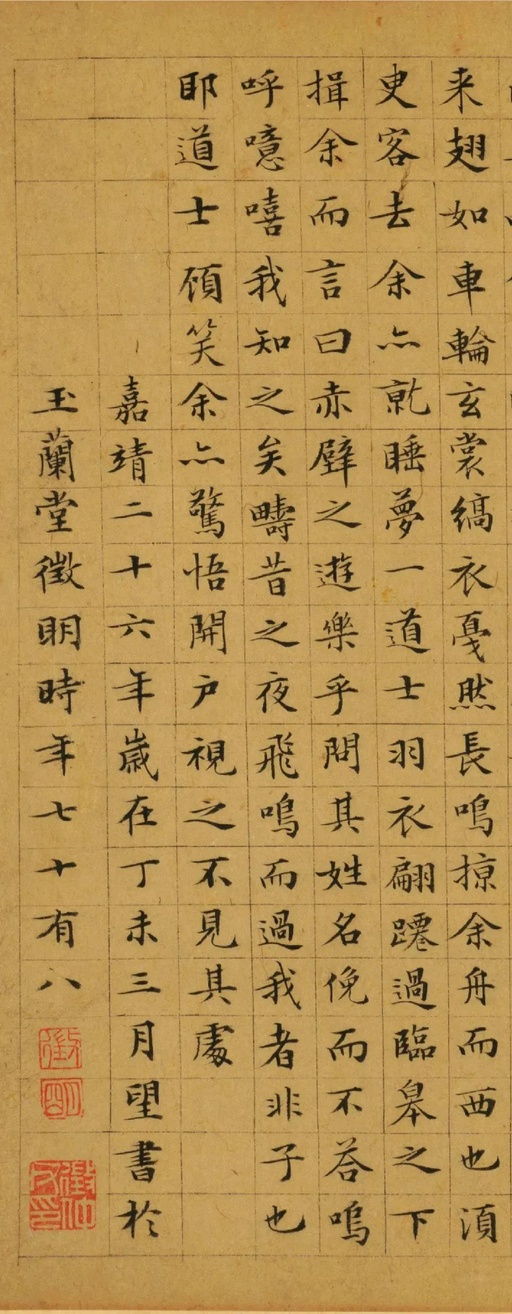 来翅如車輪玄裳縞衣戞然長鳴掠余舟而西也湏
臾客去余亦就睡夢一道士羽衣翩躚過臨皋之下
揖余而言曰赤壁之遊樂乎問其姓名俛而不荅嗚
呼噫嘻我知之矣疇昔之夜飛鳴而過我者非子也
耶道士顧笑余亦驚悟開戶視之不見其處
嘉靖二十六年歲在丁未三月望書於
玉蘭堂徵明時年七十有八
徵明